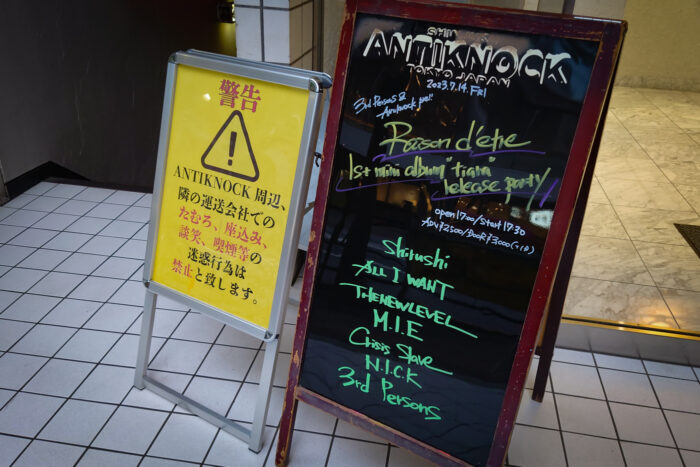 警告
ANTIKNOCK 周辺、
隣の運送会社での
たむろ、座込み、
談笑、喫煙等の
迷惑行為は
禁止と致します。
ANTIKNOCK
TOKYO JAPAN
2023.7.14. Fri
3rd Persons &
Antiknock pre!
Raison d'être
1st mini album "tiara"
release party
open 17:00/start 17:30
ADV ¥2500/DOOR ¥3000
Shirushi
ALL I WANT
THENEWLEVEL
M.I.E
Crisis Slave
N.I.C.K
3rd Persons